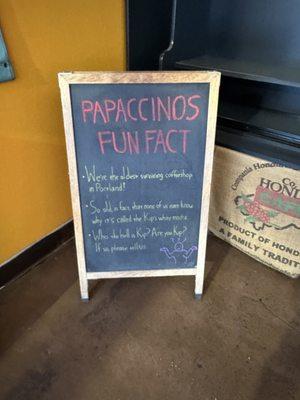 PAPACCINOS
FUN FACT
• We're the oldest surviving coffeeshop
in Portland!
• So old, in fact that none of us even know
why it's called the Kip's white mocha.
• Who the hell is Kip? Are you Kip?
If so, please tell us.
Compañía
HONDU
PRODUCT OF HONDUR
A FAMILY TRADITI